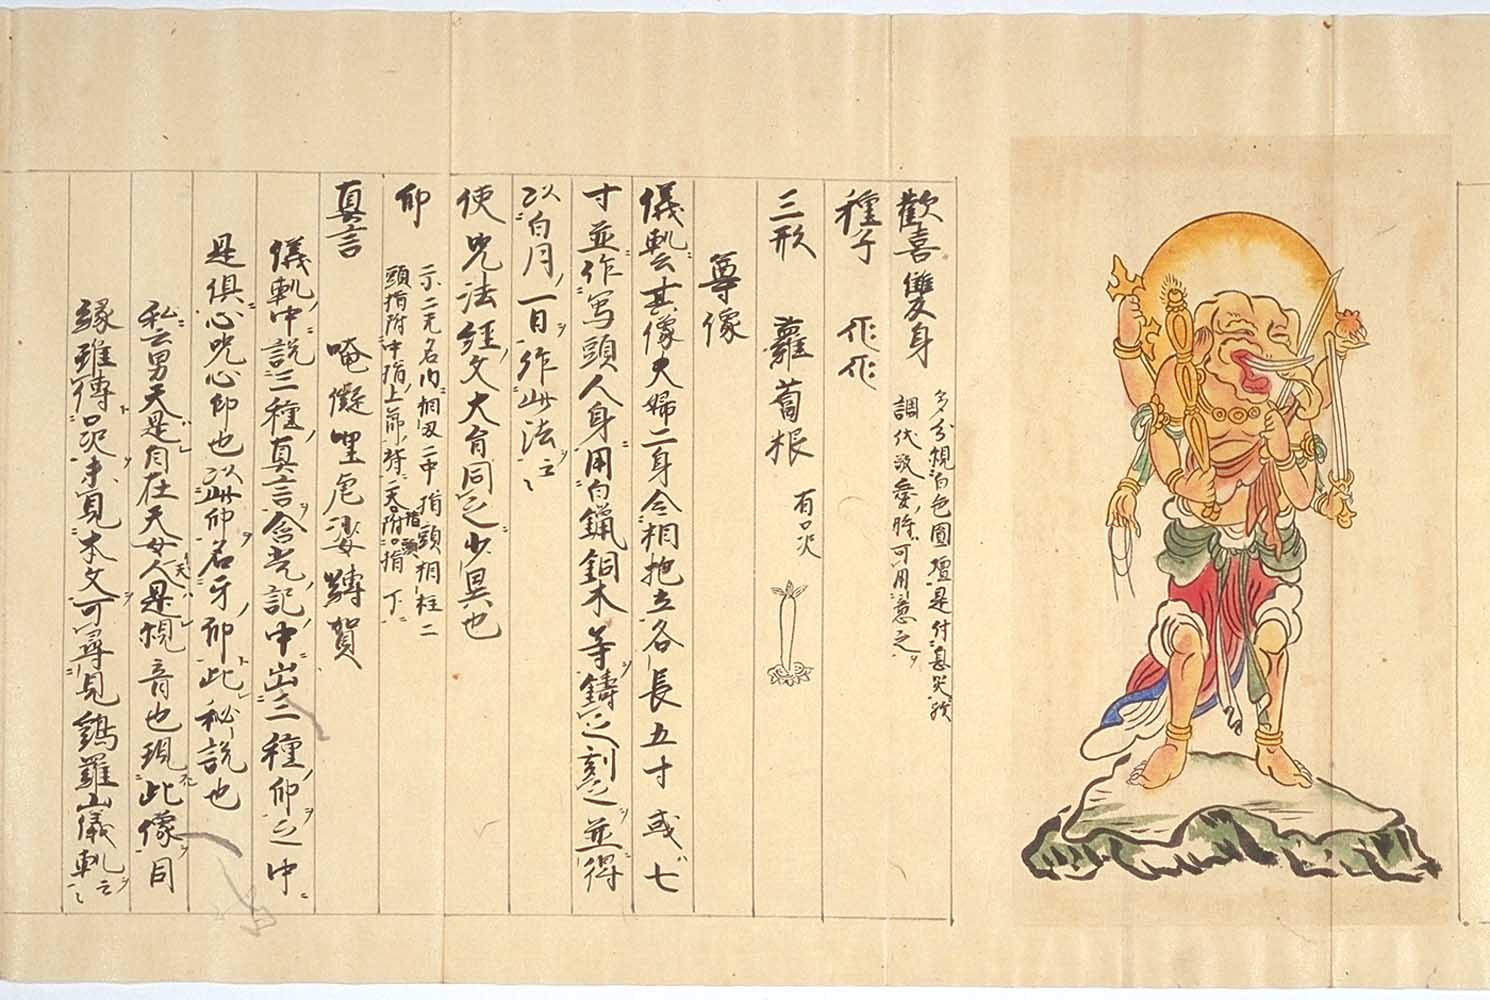 歡喜雙身
多分観白色圓壇是付息災
調伏敬愛時可用意之
種子 作作
三形 蘿蔔根 有口決
尊像
儀軌云其像夫婦二身令相抱立各長五寸或七
寸並作寫頭人身用白鑞銅木等鑄之刻之並得
以白月一日作此法云々
使咒法経文大旨同之少異也
印
示二元名内相叉二中指頭相柱二
頭指附中指上節背二大指附頭指下
真言 唵儗哩虐娑䪇賀
儀軌中説三種真言含光記中出三種印之中
是倶心咒心印也以此印名牙印此秘説也
私云男天是自在天女人天是観音也現此像同
縁雖傳口決未見本文可尋見鶏羅山儀軌云々